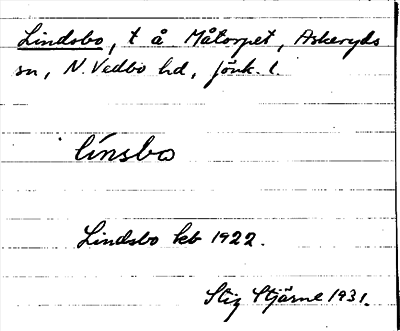 Lindsbo, t å Måtorpet, Askeryds
sn, N. Vedbo hd, Jönk. l.
línsbo
Lindsbo kb 1922.
Stig Stjärne 1931.